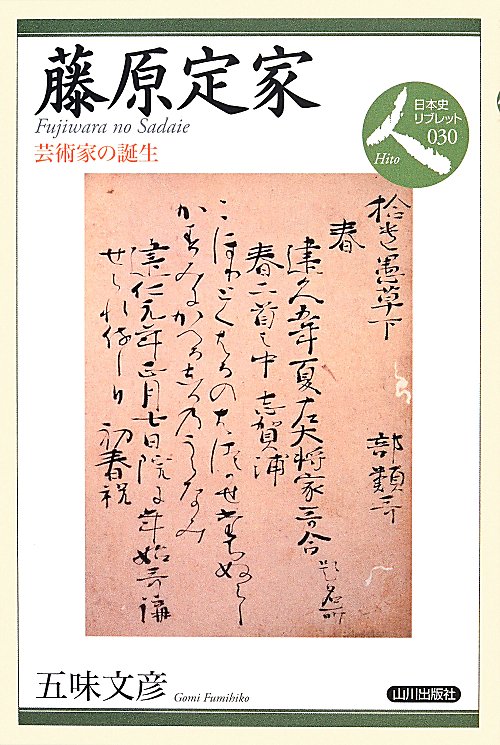 藤原定家
Fujiwara no Sadaie
芸術家の誕生
日本史
リブレット
030
人
Hito
拾遺愚草下 部類哥
春
建久五年夏左大将家哥合
春二首之中 志賀浦
建仁元年正月七日院 年始哥講
せられ侍しり 初春祝
五味文彦
Gomi Fumihiko
山川出版社